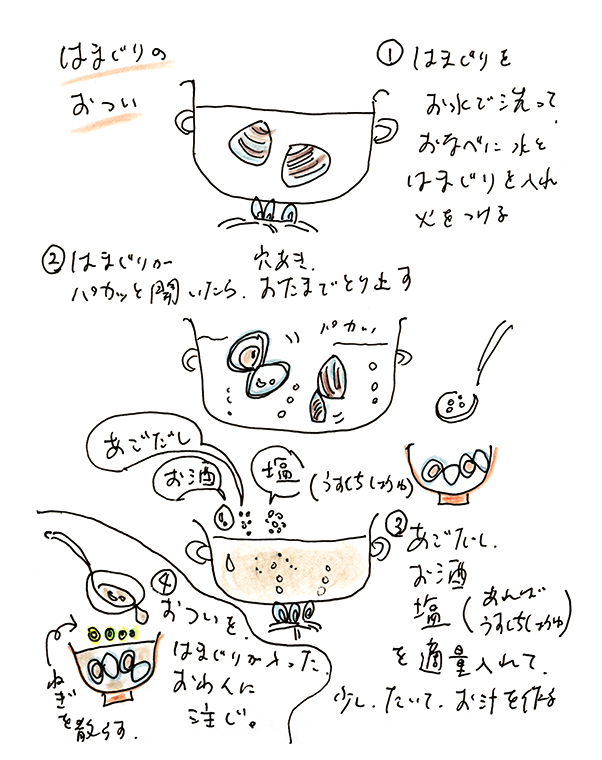 はまぐりの
おつい
① はまぐりを
お水で洗って、
おなべに水と
はまぐりを入れ
火をつける
② はまぐりが
穴あき
パカッと開いたら、おたまでとり出す
パカッ
あごだし
お酒
塩
(うすくちしょうゆ)
③ あごだし、
お酒
塩(あれば うすくちしょうゆ)
を適量入れて、
少し、たいて、お汁を作る
④ おついを、
はまぐりが入った、
おわんに
注ぐ。
ねぎを散らす。